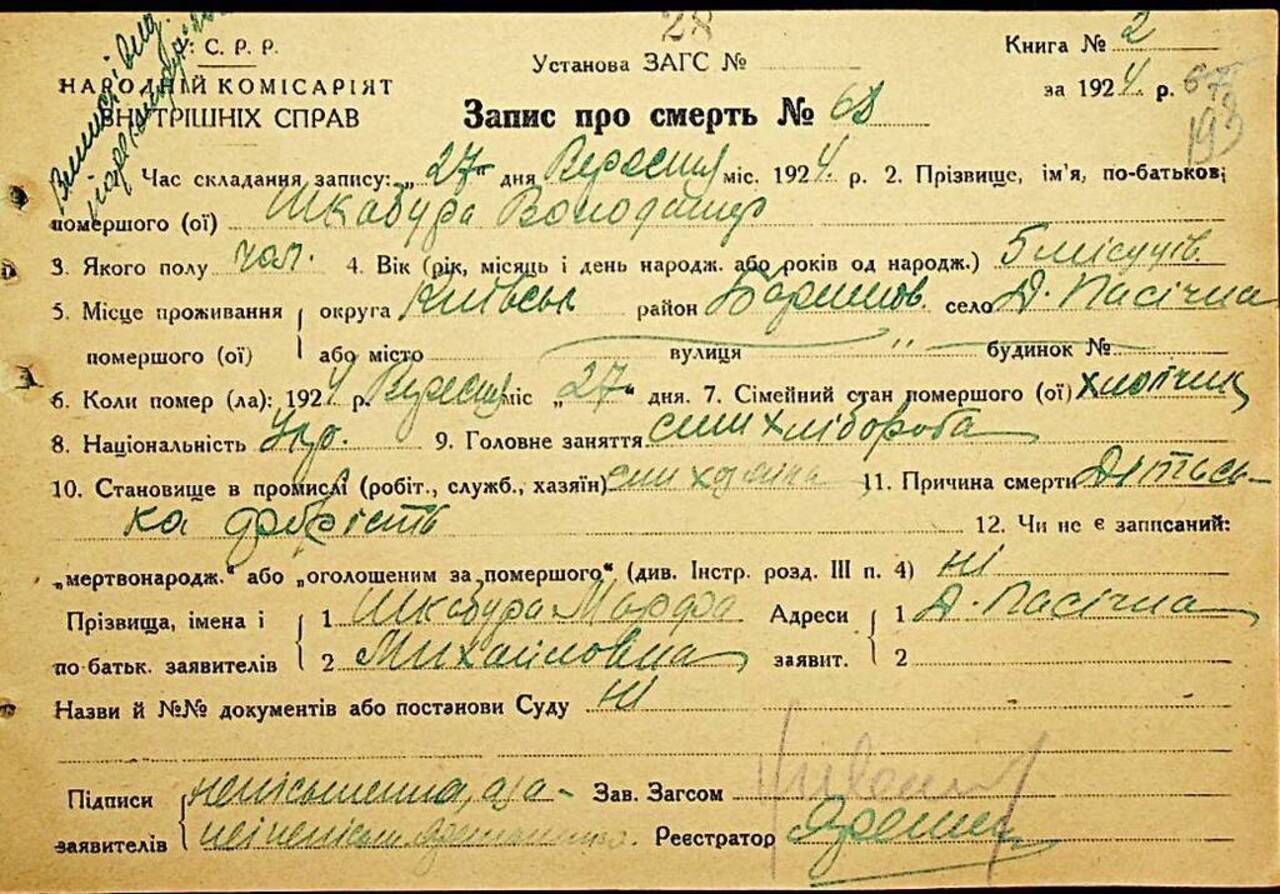 28
У. С. Р. Р.
Установа ЗАГС №
Книга № 2
НАРОДНІЙ КОМІСАРІЯТ
за 1924 р.
ВНУТРІШНІХ СПРАВ
Запис про смерть № 68
193
Час складання запису: „27“ дня Вересня міс. 1924 р. 2. Прізвище, ім'я, по-батькові
помершого (ої) Шкабура Володимир
3. Якого полу чол. 4. Вік (рік, місяць і день народж. або років од народж.) 5 місуців
5. Місце проживання округа Київськ район Баришов. село Д. Пасічна
помершого (ої) або місто вулиця „ будинок №
6. Коли помер (ла): 1924 р. Вересня міс „27“ дня. 7. Сімейний стан помершого (ої) хлопчик
8. Національність Укр. 9. Головне заняття син хлібороба
10. Становище в промислі (робіт., служб., хазяїн) син хазяїна 11. Причина смерти Дітсь-
ка
12. Чи не є записаний:
„мертвонародж.“ або „оголошеним за помершого“ (див. Інстр. розд. III п. 4) ні
Прізвища, імена і 1 Шкабура Марфа Адреси 1 Д. Пасічна
по батьк. заявителів 2 Михайловна заявит. 2
Назви й №№ документів або постанови Суду ні
Підписи неписьменна, а за - Зав. Загсом
заявителів Реєстратор